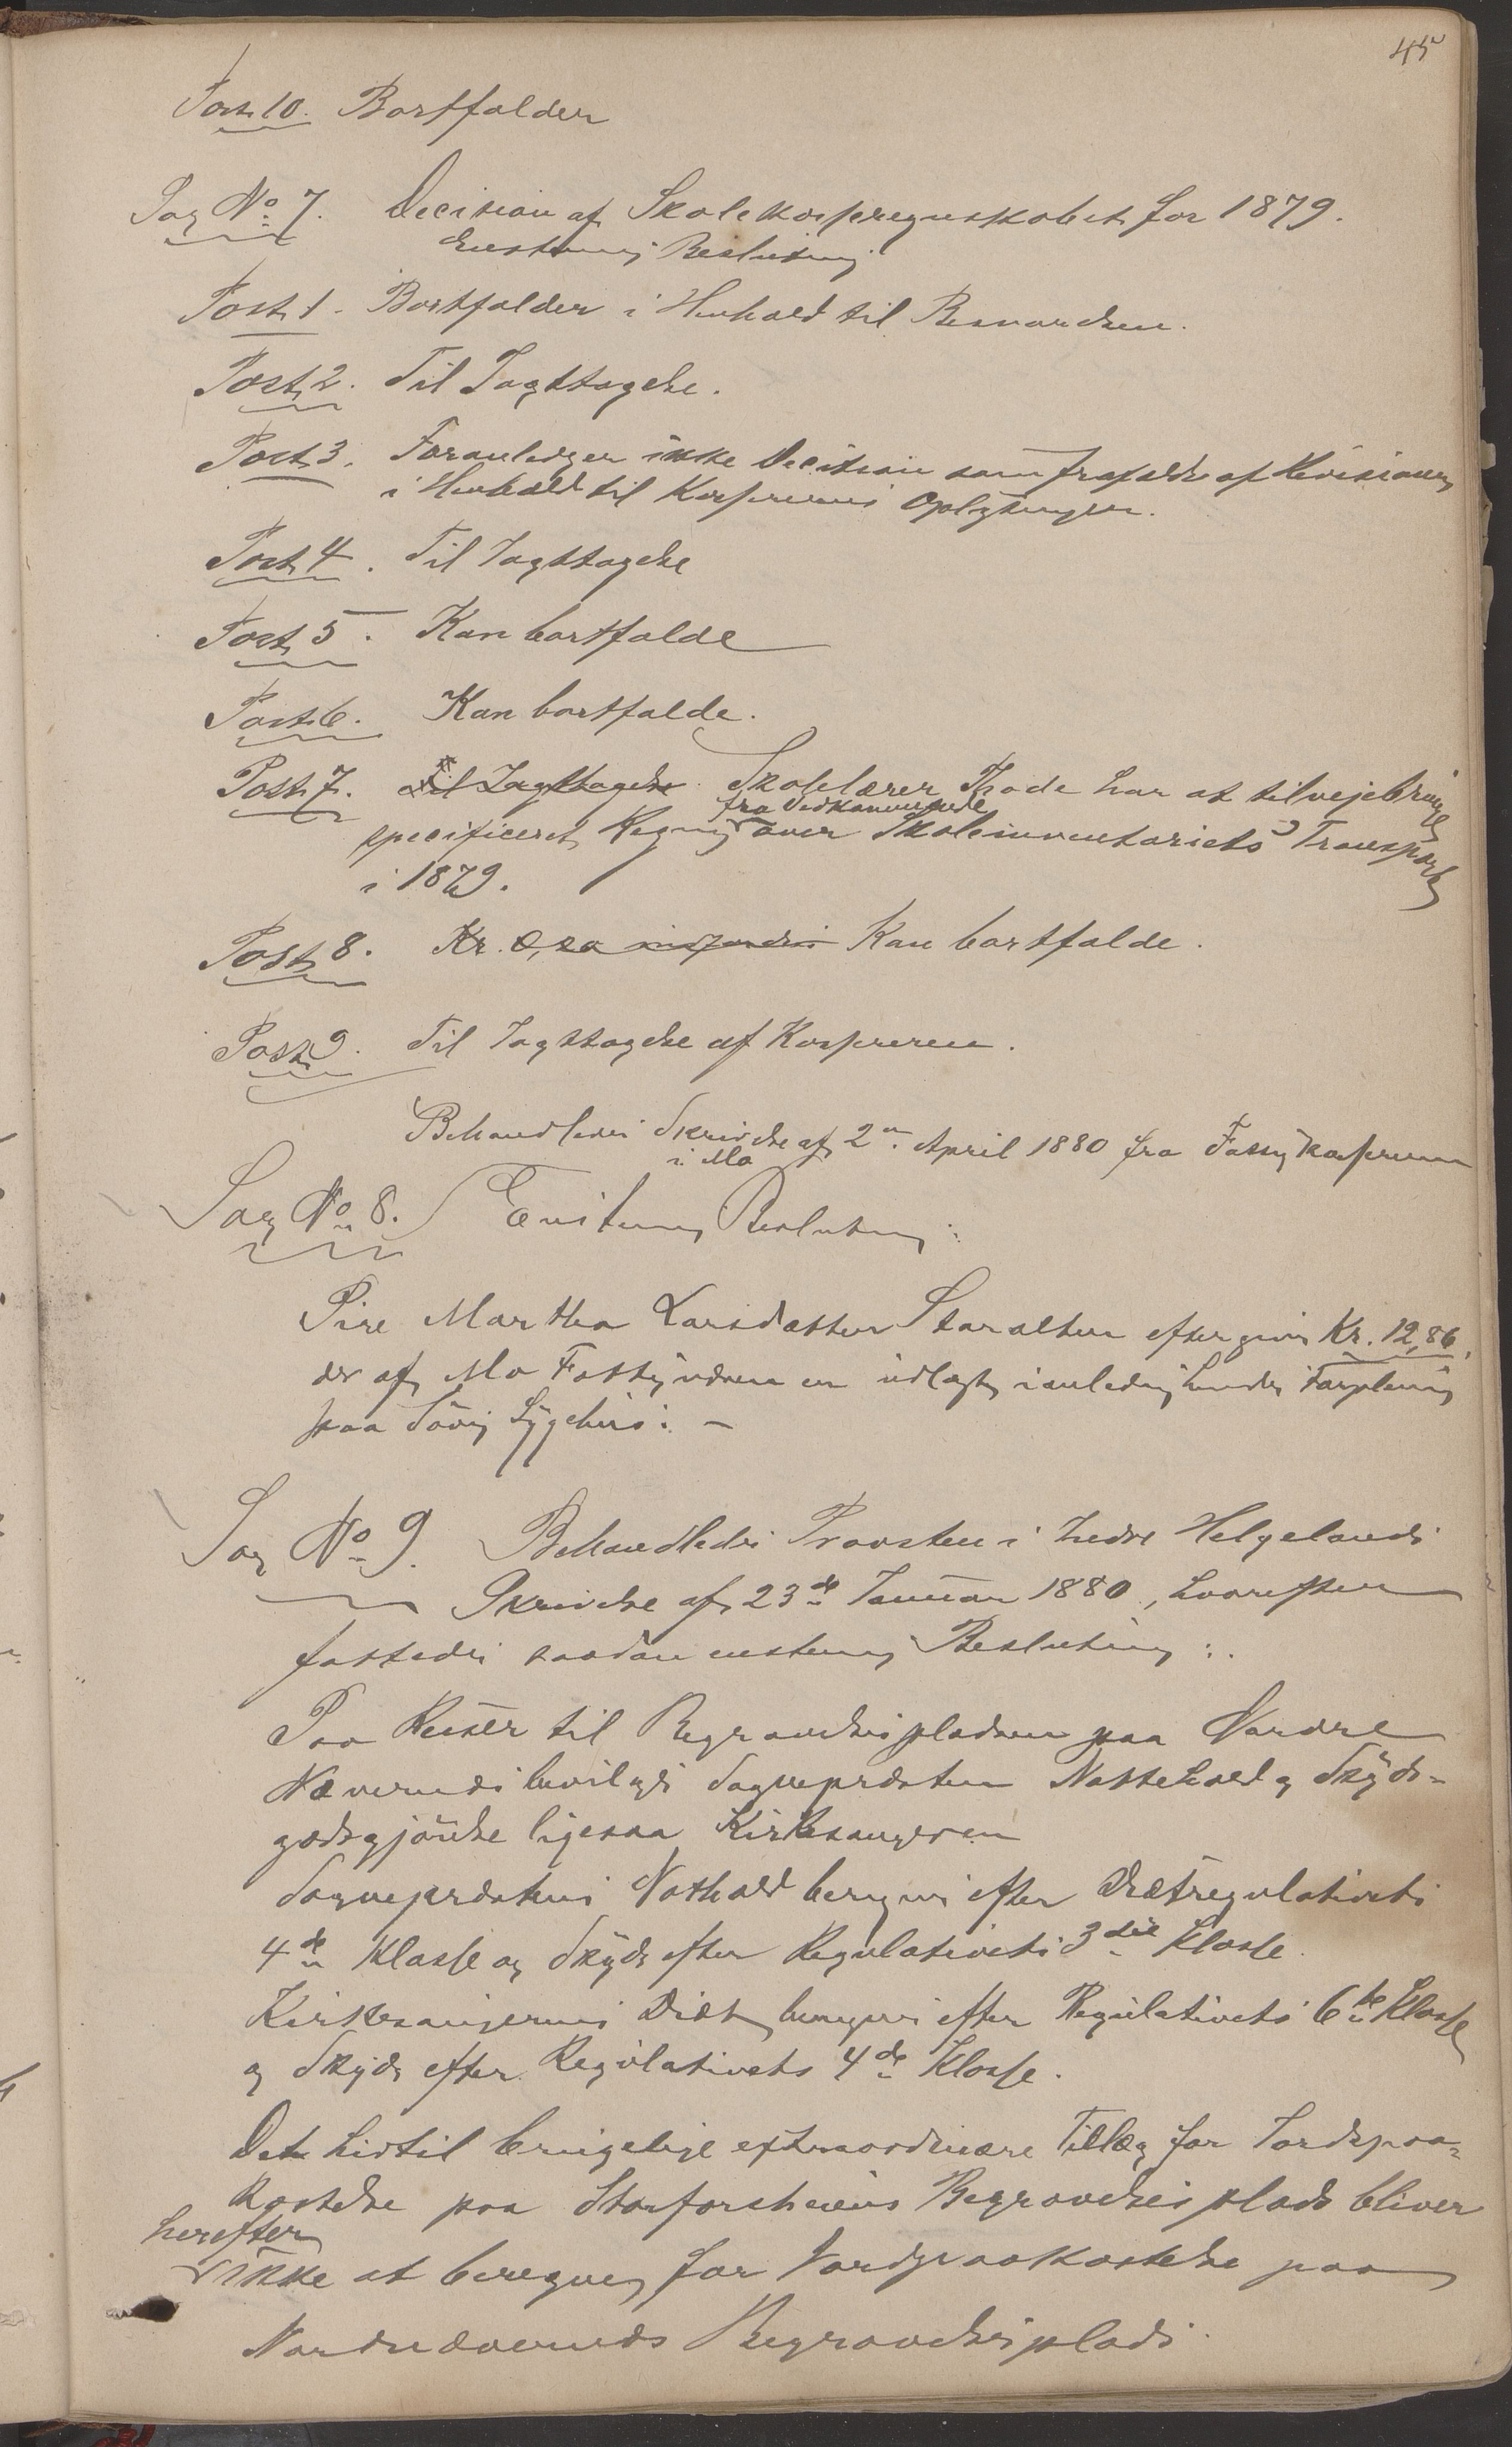 45
Post 10. Bortfalder
Sag No 7. Decision af Skolekasseregnskabet for 1879.
Enstemig Beslutning
Post 1. Bortfalder i Henhold til Besvarelsen.
Post 2. Til Iagttagelse.
Post 3. Foranlediger ikke Decision som frafaldt af Revisionen
i Henhold til Kassererens Oplysninger.
Post 4. Til Iagttagelse
Post 5. Kan bortfalde
Post 6. Kan bortfalde.
Post 7. Til Iagttagelse Skolelærer Thode har at tilvejebringe
fra Vedkommende
specificeret Regning over Skoleinventariets Transport
i 1879.
Post 8. Kr. 0, Kan bortfalde.
Post 9. Til Iagttagelse af Kassereren.
Behandledes Skrivelse af 2den April 1880 fra Fattigkassereren
i Mo
Sag No 8. Enstemig Beslutning:
Pige Martha Larsdatter eftergives Kr. 12,86,
der af Mo Fattigvæsen er udlagt i anledning hendes Forpleining
paa Søvig Sygehus. -
Sag No 9. Behandledes Provsten i Indre Helgelands
Skrivelse af 23de Januar 1880, hvorefter
fattedes saadan enstemig Beslutning:
Paa Reiser til Begravelsespladsen paa Nordre
Næverneds bevilges Sognepresten Nattehold og Skyds-
godtgjørelse ligesaa Kirkesangeren
Sognepræstens Nathold beregnes efter Diætregulativets
4de Klasse og Skyds efter Regulativets 3die Klasse.
Kirkesangerens Diæt beregnes efter Regulativets 6te Klasse
og Skyds efter Regulativets 4de Klasse.
Det hidtil brugelige extraordinære Tillæg for Jordspaa-
kastelse paa Storforsheiens Begravelsesplads bliver
herefter
ikke at beregne for Jordpaakastelse paa
Nordnæverneds Begravelsesplads.